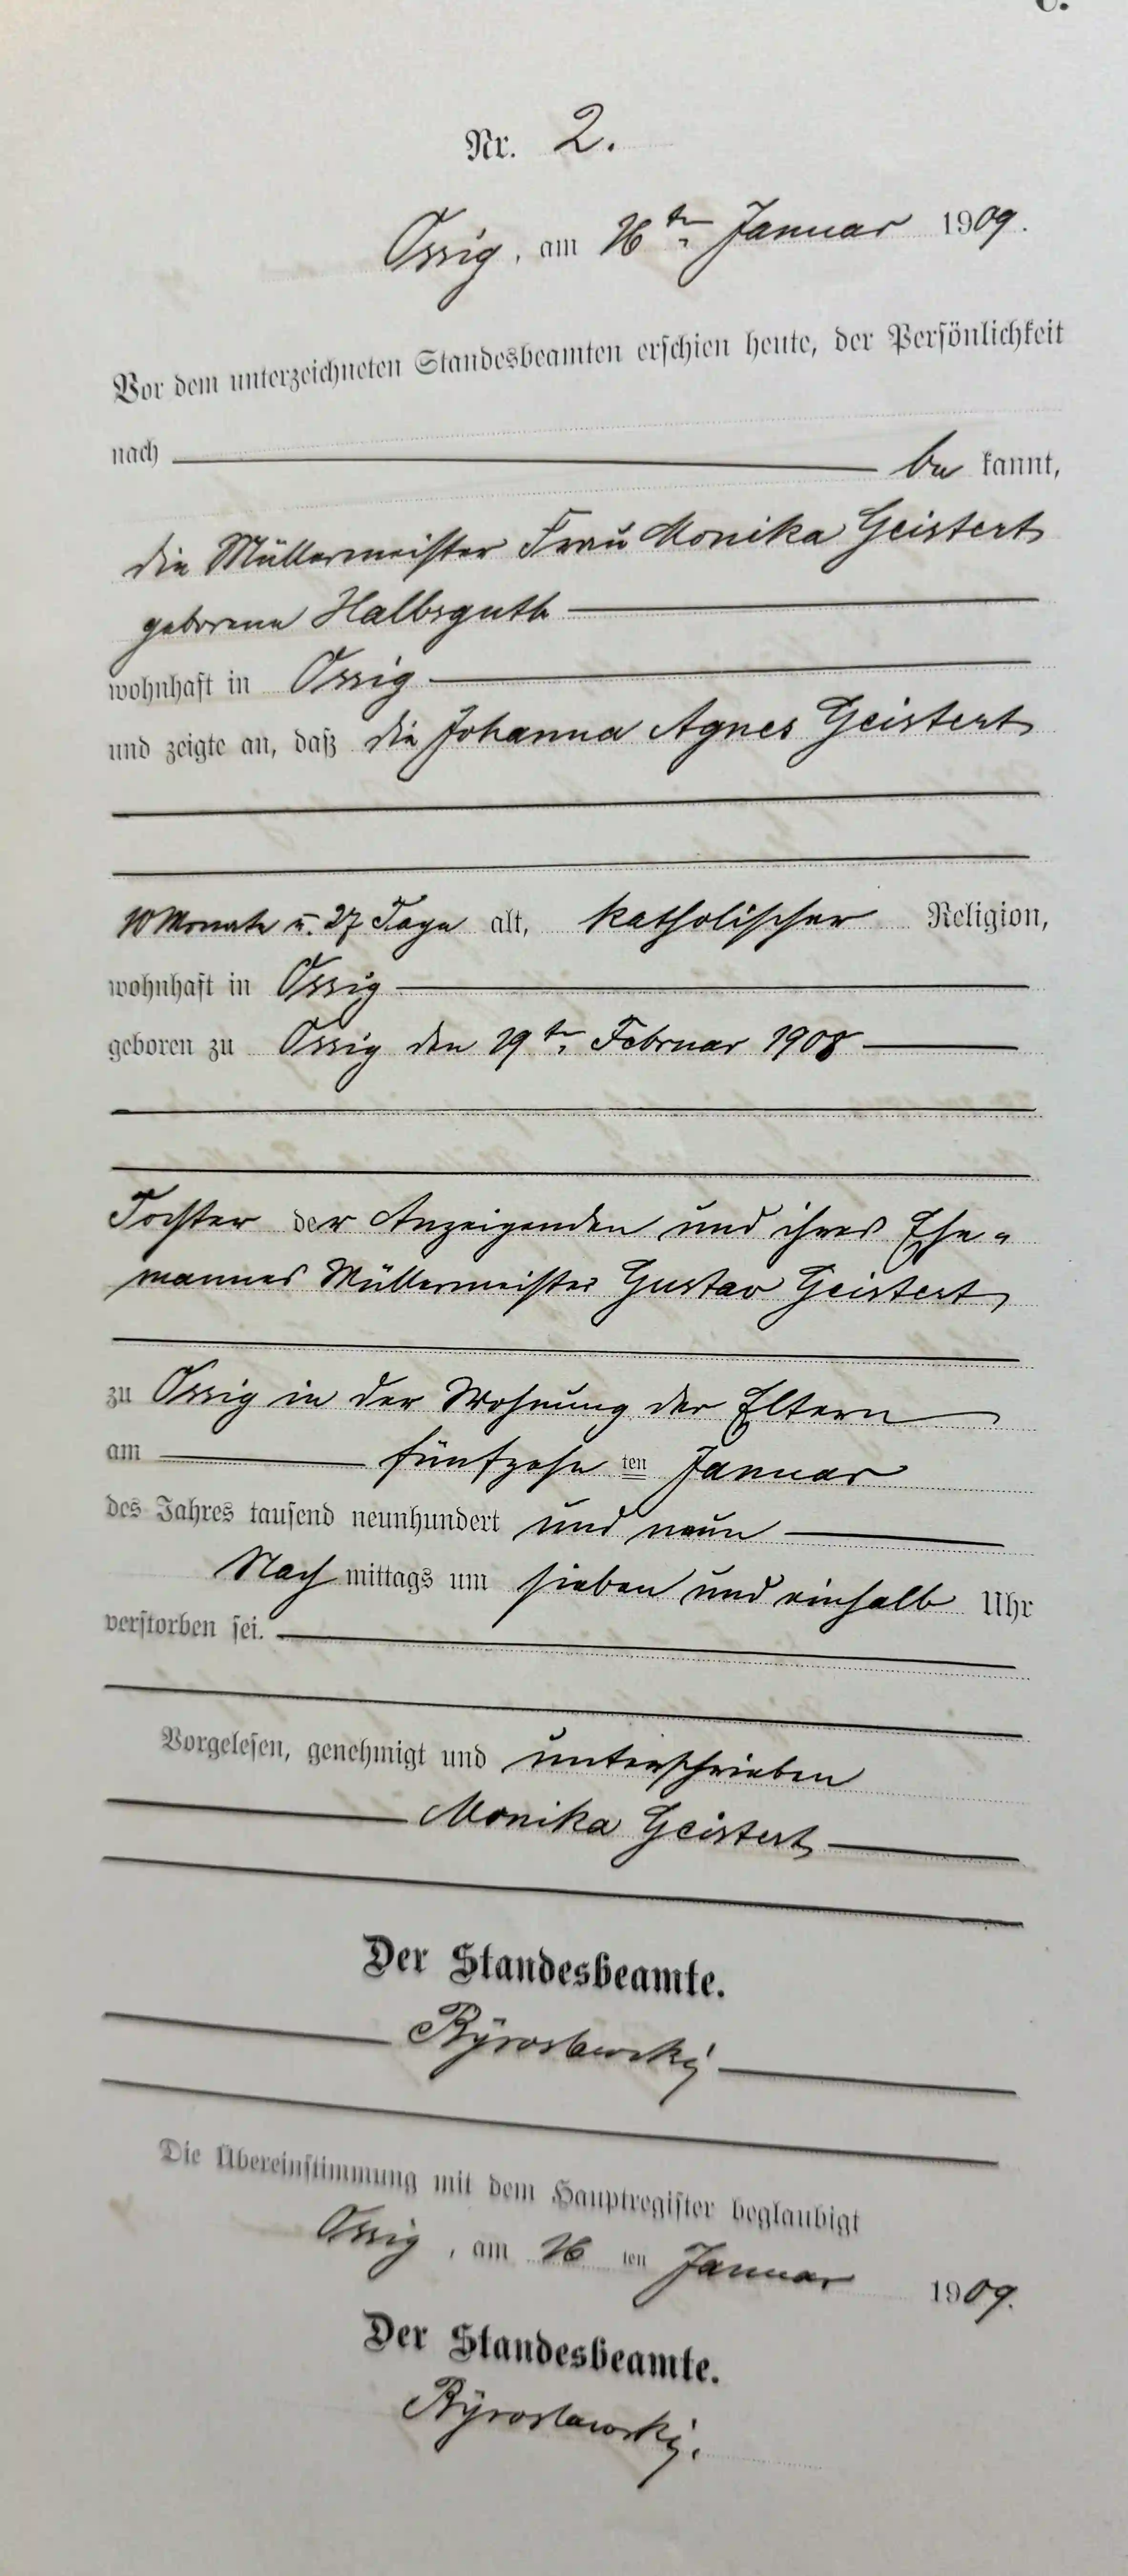 Nr. 2.
Ossig, am 16ten Januar 1909.
Vor dem unterzeichneten Standesbeamten erschien heute, der Persönlichkeit
nach be kannt,
die Müllermeister Frau Monika Geistert
geborene Halbsguth
wohnhaft in Ossig
und zeigte an, daß die Johanna Agnes Geistert
10 Monate u. 27 Tage alt, katholischer Religion,
wohnhaft in Ossig
geboren zu Ossig den 19ten Februar 1908
Tochter der Anzeigenden und ihres Ehe-
mannes Müllermeister Gustav Geistert
zu Ossig in der Wohnung der Eltern
am fünfzehn ten Januar
des Jahres tausend neunhundert und neun
Nach mittags um sieben und einhalb Uhr
verstorben sei.
Vorgelesen, genehmigt und unterschrieben
Monika Geistert
Der Standesbeamte.
Die Übereinstimmung mit dem Hauptregister beglaubigt
Ossig, am 16 ten Januar 1909.
Der Standesbeamte.